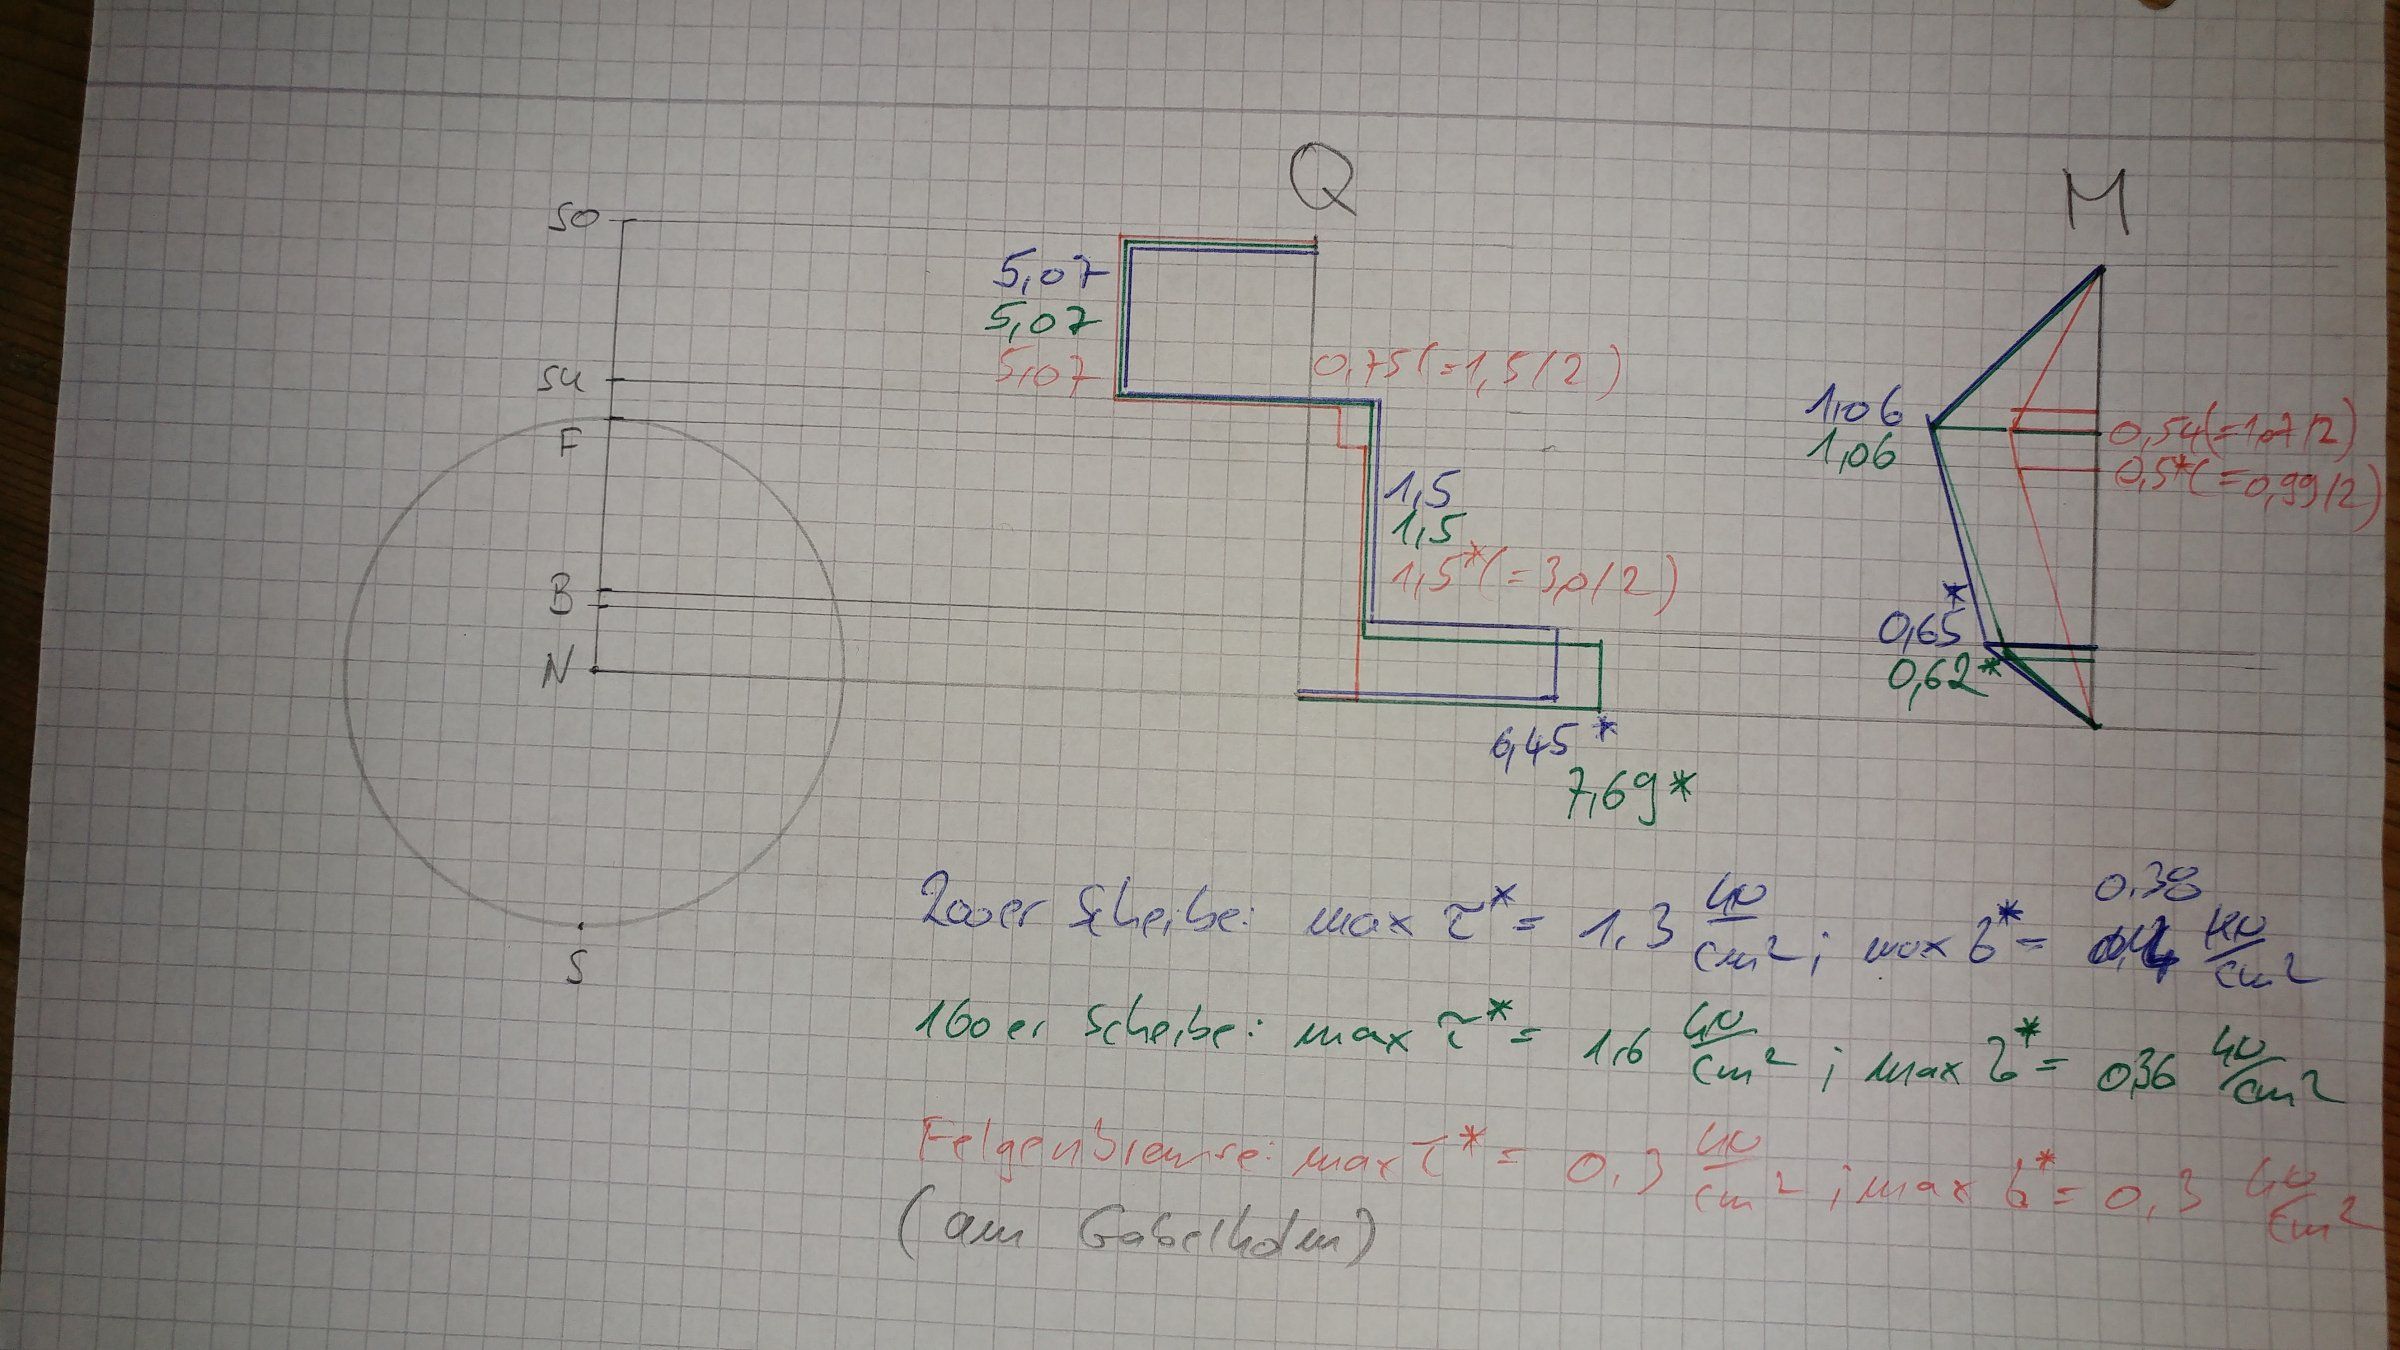 Q
M
SO
SU
F
B
N
S
5,07
5,07
5,07
0,75(=1,5/2)
1,5
1,5
1,5*(=3,0/2)
6,45*
7,69*
1,06
1,06
0,54(=1,07/2)
0,5*(=0,99/2)
0,65*
0,62*
200er Scheibe: max τ* = 1,3 kN/cm²; max σ* = 0,38 kN/cm²
160er Scheibe: max τ* = 1,6 kN/cm²; max σ* = 0,36 kN/cm²
Felgenbremse: max τ* = 0,3 kN/cm²; max σ* = 0,3 kN/cm²
(am Gabelholm)